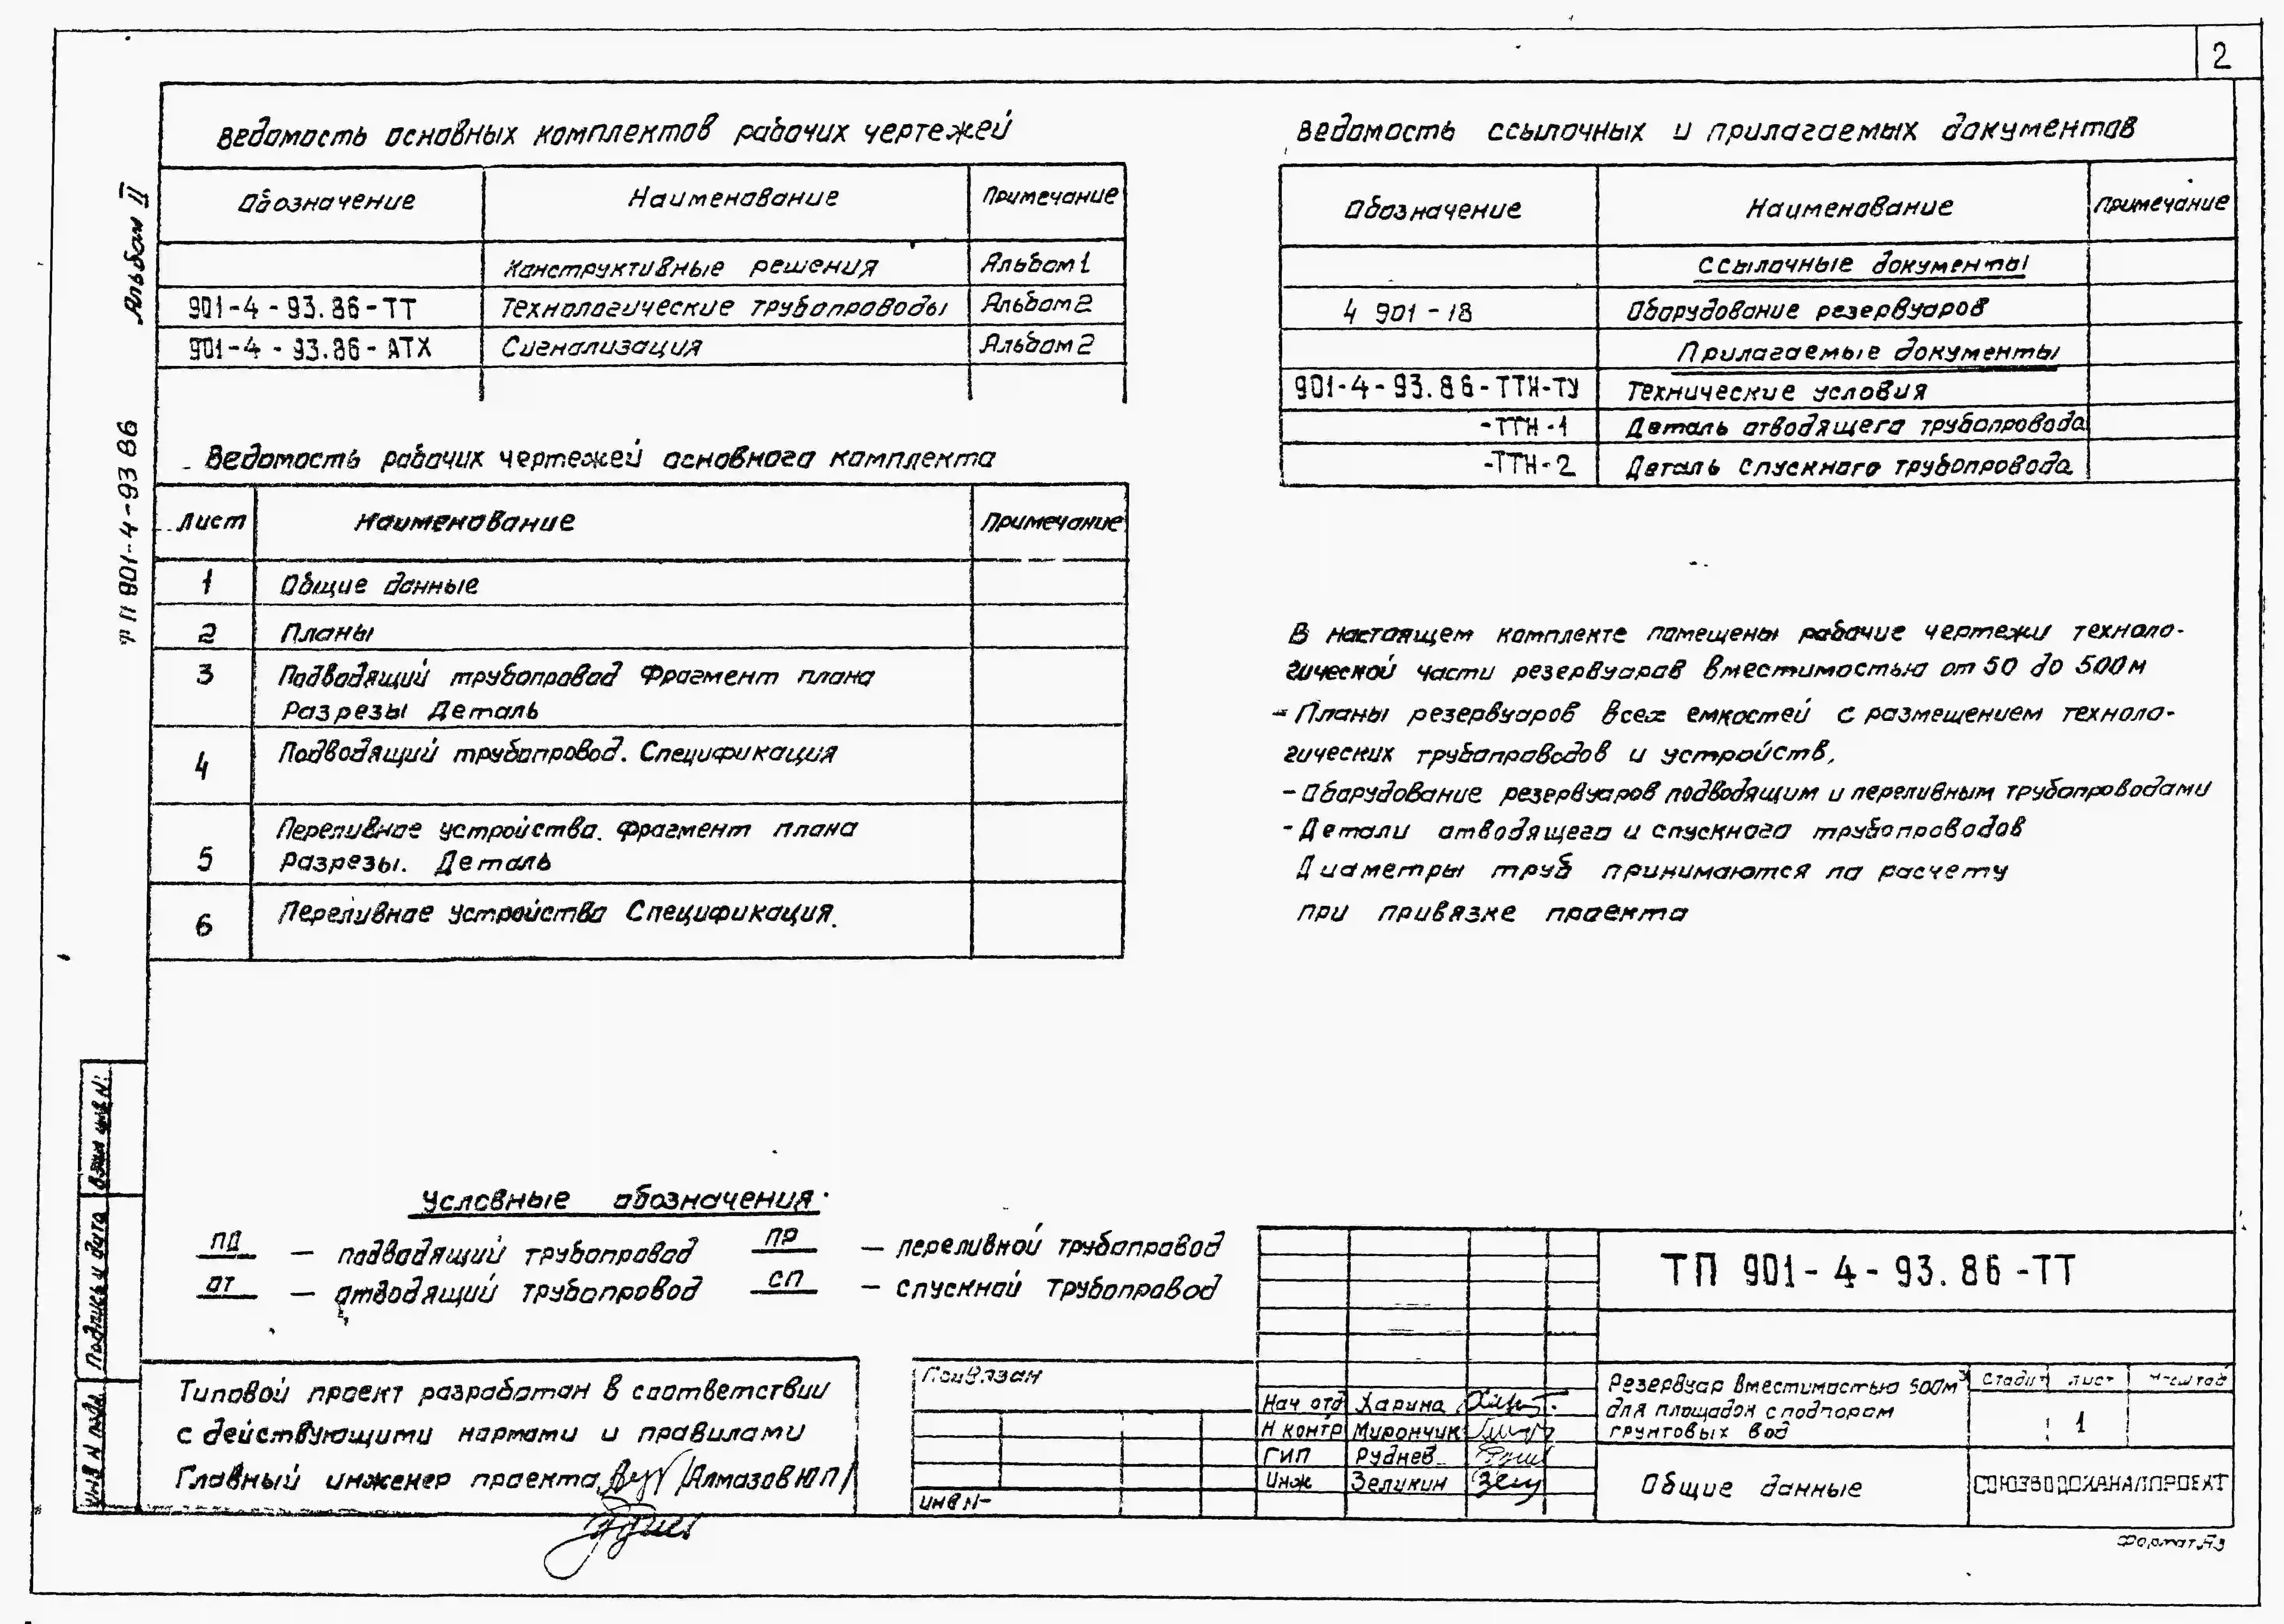 2
Альбом II
ТП 901-4-93 86
Ведомость основных комплектов рабочих чертежей
Обозначение Наименование Примечание
Конструктивные решения Альбом 1
901-4-93.86-ТТ Технологические трубопроводы Альбом 2
901-4-93.86-АТХ Сигнализация Альбом 2
Ведомость рабочих чертежей основного комплекта
Лист Наименование Примечание
1 Общие данные
2 Планы
3 Подводящий трубопровод Фрагмент плана
Разрезы Деталь
4 Подводящий трубопровод. Спецификация
Переливное устройство. Фрагмент плана
5 Разрезы. Деталь
6 Переливное устройство Спецификация.
Ведомость ссылочных и прилагаемых документов
Обозначение Наименование Примечание
Ссылочные документы
4 901-18 Оборудование резервуаров
Прилагаемые документы
901-4-93.86-ТТН-ТУ Технические условия
-ТТН-1 Деталь отводящего трубопровода
-ТТН-2 Деталь спускного трубопровода
В настоящем комплекте помещены рабочие чертежи техноло-
гической части резервуаров вместимостью от 50 до 500м
- Планы резервуаров всех емкостей с размещением техноло-
гических трубопроводов и устройств,
- Оборудование резервуаров подводящим и переливным трубопроводами
- Детали отводящего и спускного трубопроводов
Диаметры труб принимаются по расчету
при привязке проекта
Условные обозначения
ПД — подводящий трубопровод
ПР — переливной трубопровод
ОТ — отводящий трубопровод
СП — спускной трубопровод
Взам инв N:
Подпись и дата
Инв N подл.
Типовой проект разработан в соответствии
с действующими нормами и правилами
Главный инженер проекта /Алмазов Ю П/
Привязан
Инв N-
Нач отд Харина
Н контр Мирончик
ГИП Руднев
Инж Зеликин
ТП 901-4-93.86-ТТ
Резервуар вместимостью 500м³
для площадок с подпором
грунтовых вод
Стадия Лист Масштаб
1
Общие данные
СОЮЗВОДОКАНАЛПРОЕКТ
Формат А3